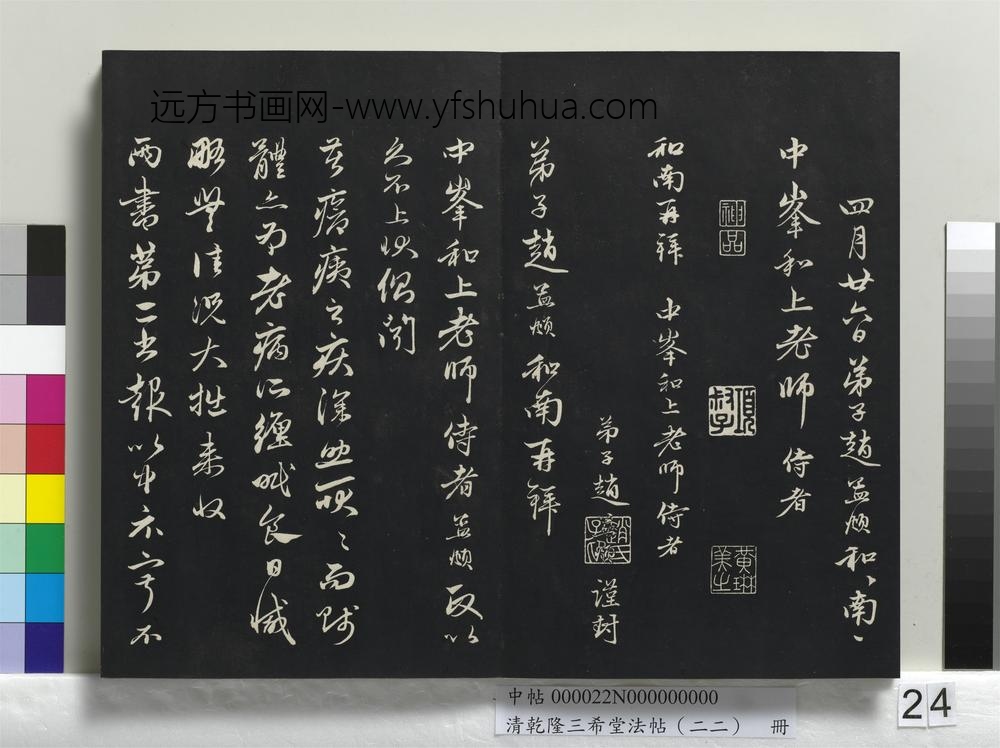 远方书画网-www.yfshuhua.com
四月廿六日弟子趙孟頫和、南、
中峯和上老師侍者
神品
項
黃琳美之
和南再拜 中峯和上老師侍者
弟子趙 謹封
弟子趙孟頫和南再拜
中峯和上老師侍者孟頫政以
久不上狀偶閱
苦瘡痍之疾深
體亦為老病所纏眠食日減
略無佳況大拙來收
兩書第二書報以中示寂不
中帖 000022N000000000
清乾隆三希堂法帖(二二) 冊
24